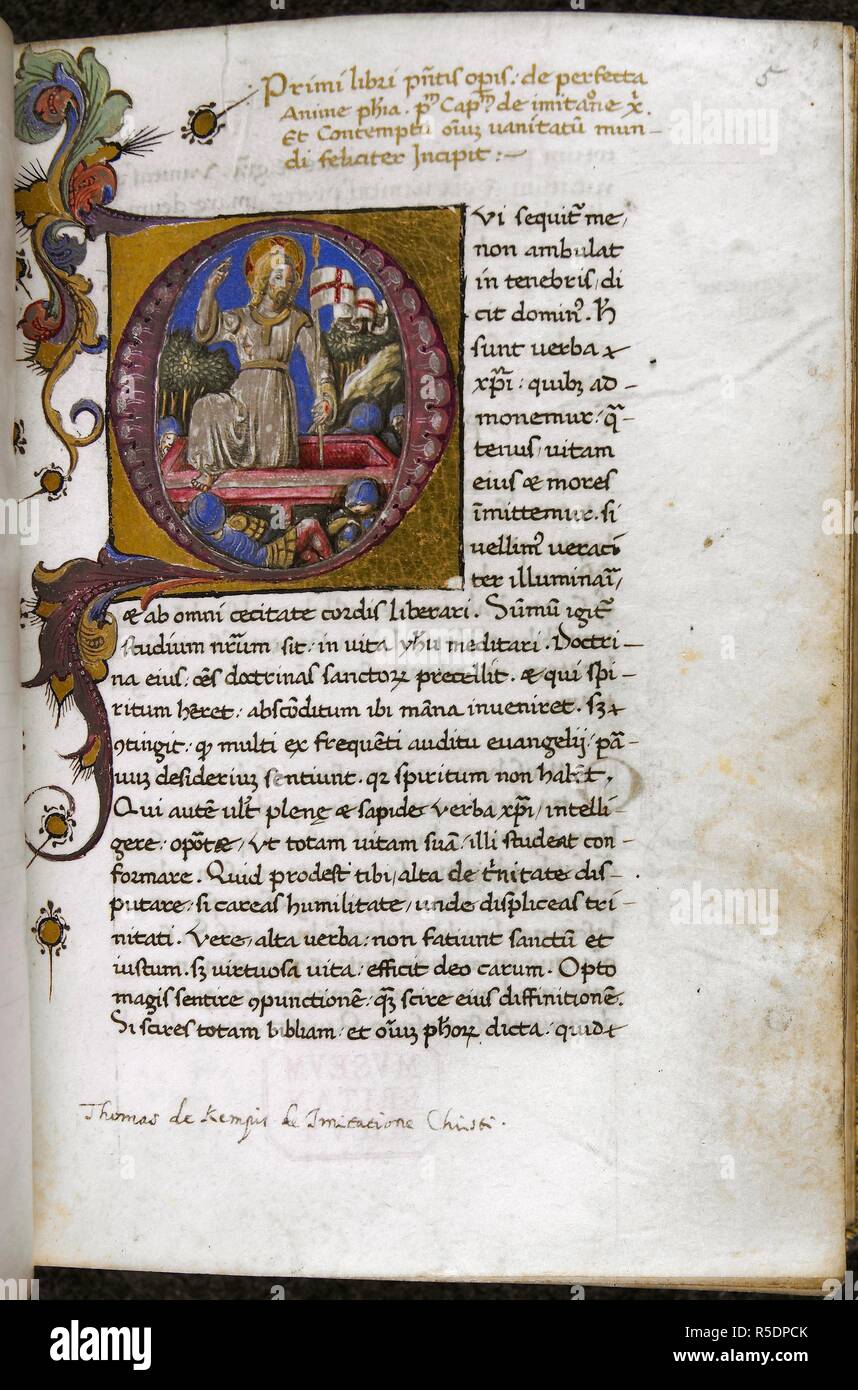 5
Primi libri pñtis opis: de perfecta
Anime phia. pm Capm de imitaōne x̄.
Et Contemptu oīuȝ uanitatū mun-
di feliciter Incipit:-
Qui sequit᷑ me,
non ambulat
in tenebris, di
cit domin9. H
sunt uerba
xp̄i: quibȝ ad-
monemur: q̄-
tenus, uitam
eius & mores
īmittemur. si
uellim9 ueraci
ter illuminari,
& ab omni cecitate cordis liberari. Sūmū igit᷑
studium nr̄um sit: in uita yħu meditari. Doctri-
na eius: oēs doctrinas sanctorꝝ precellit. & qui spi-
ritum hēret: abscōditum ibi māna inueniret. Sȝ
ꝯtingit: ꝙ multi ex frequēti auditu euangelij: pā-
uuȝ desideriuȝ sentiunt. qꝛ spiritum non habēt.
Qui autē ult plene & sapide uerba xp̄i, intelli-
gere: opōt &, ut totam uitam suā, illi studeat con-
formare. Quid prodest tibi, alta de t'nitate dis-
putare: si careas humilitate, unde displiceas tri-
nitati. Vere, alta uerba: non fatiunt sanctū et
iustum. sȝ uirtuosa uita: efficit deo carum. Opto
magis sentire ꝯpunctionē: qȝ scire eius diffinitionē.
Si scires totam bibliam: et oīuȝ phorꝝ dicta: quid
MVSEVM
BRITA
Thomas de Kempis de Imitatione Christi.
alamy
Image ID: R5DPCK
www.alamy.com
alamy stock photo